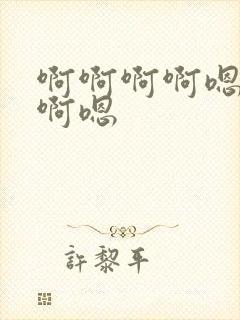 啊啊啊啊嗯
啊嗯
許黎平